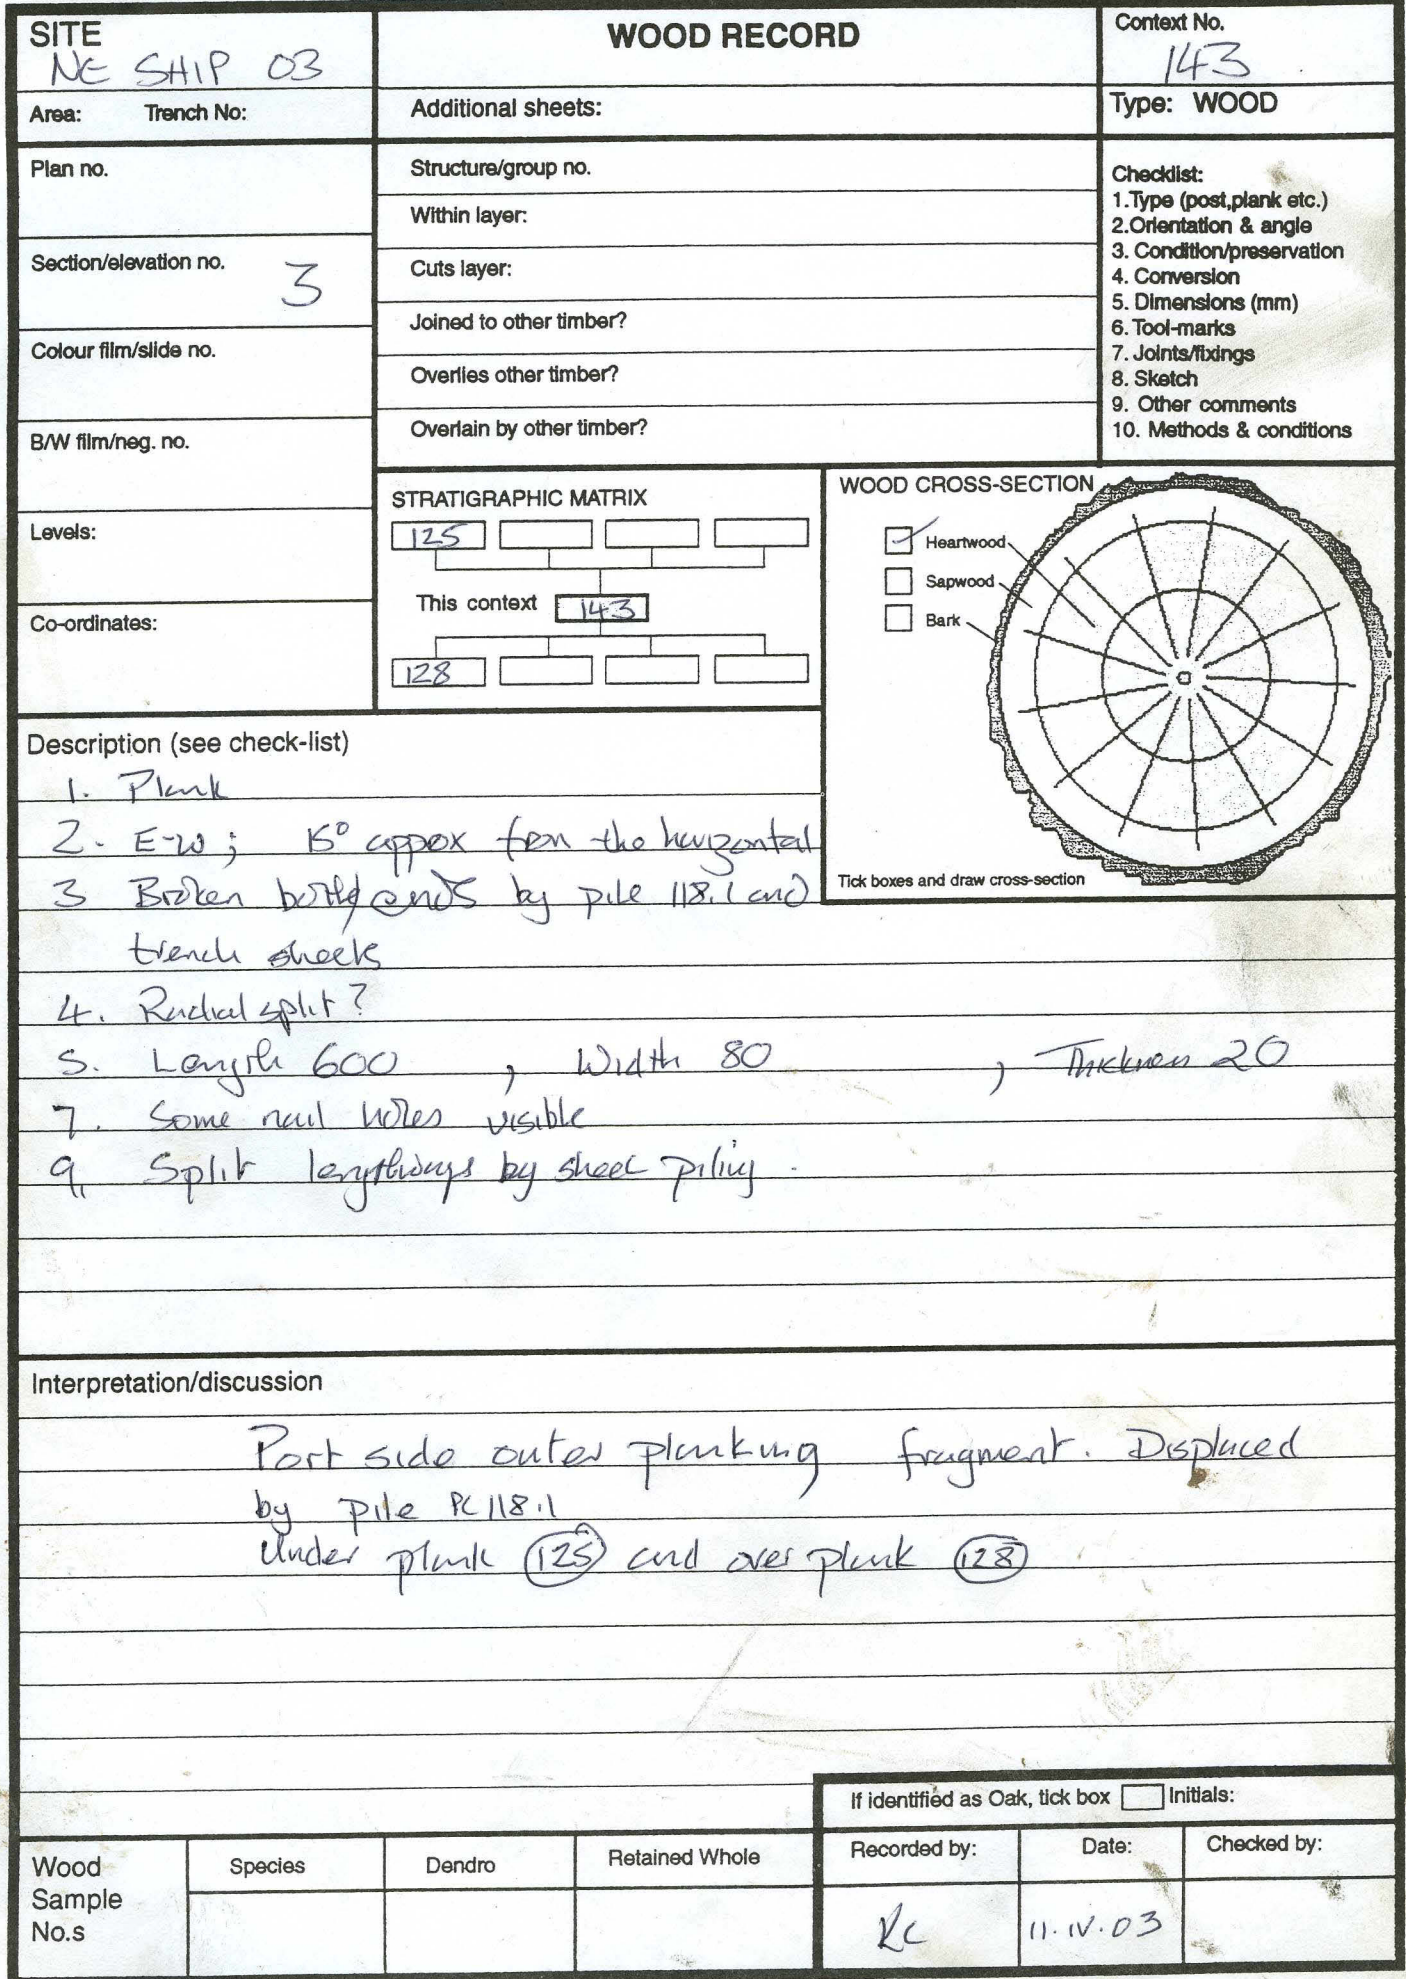 SITE
NE SHIP 03
WOOD RECORD
Context No.
143
Area: Trench No:
Additional sheets:
Type: WOOD
Plan no.
Structure/group no.
Within layer:
Section/elevation no. 3
Cuts layer:
Joined to other timber?
Colour film/slide no.
Overlies other timber?
B/W film/neg. no.
Overlain by other timber?
Checklist:
1.Type (post,plank etc.)
2.Orientation & angle
3. Condition/preservation
4. Conversion
5. Dimensions (mm)
6. Tool-marks
7. Joints/fixings
8. Sketch
9. Other comments
10. Methods & conditions
Levels:
Co-ordinates:
STRATIGRAPHIC MATRIX
125
This context 143
128
WOOD CROSS-SECTION
Heartwood
Sapwood
Bark
Tick boxes and draw cross-section
Description (see check-list)
1. Plank
2. E-W; 15° appox from the horizontal
3 Broken both ends by pile 118.1 and
trench sheets
4. Radial split?
5. Length 600 , Width 80 , Thickness 20
7. Some nail holes visible
9. Split lengthways by sheet piling.
Interpretation/discussion
Port side outer planking fragment. Displaced
by pile PC118.1
Under plank 125 and over plank 128
If identified as Oak, tick box Initials:
Wood
Sample
No.s
Species
Dendro
Retained Whole
Recorded by:
Date:
Checked by:
RC
11.IV.03